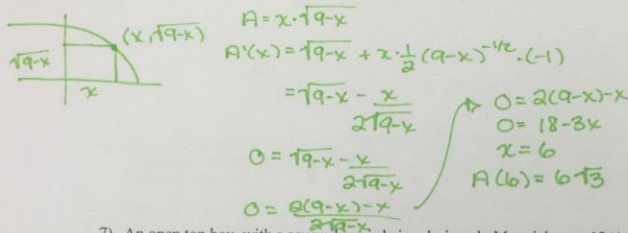 (x, √9-x)
√9-x
x
A = x·√9-x
A'(x) = √9-x + x·1/2(9-x)^-1/2·(-1)
= √9-x - x/2√9-x
0 = √9-x - x/2√9-x
0 = 2(9-x)-x/2√9-x
0 = 2(9-x)-x
0 = 18-3x
x = 6
A(6) = 6√3
7) An open top box with a